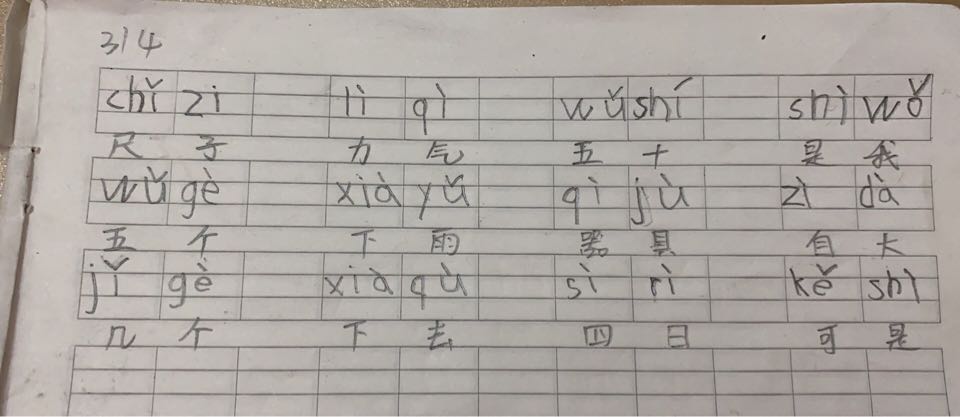 314
chǐ zi lì qì wǔ shí shì wǒ
尺 子 力 气 五 十 是 我
wǔ gè xià yǔ qì jù zì dà
五 个 下 雨 器 具 自 大
jǐ gè xià qù sì rì kě shì
几 个 下 去 四 日 可 是